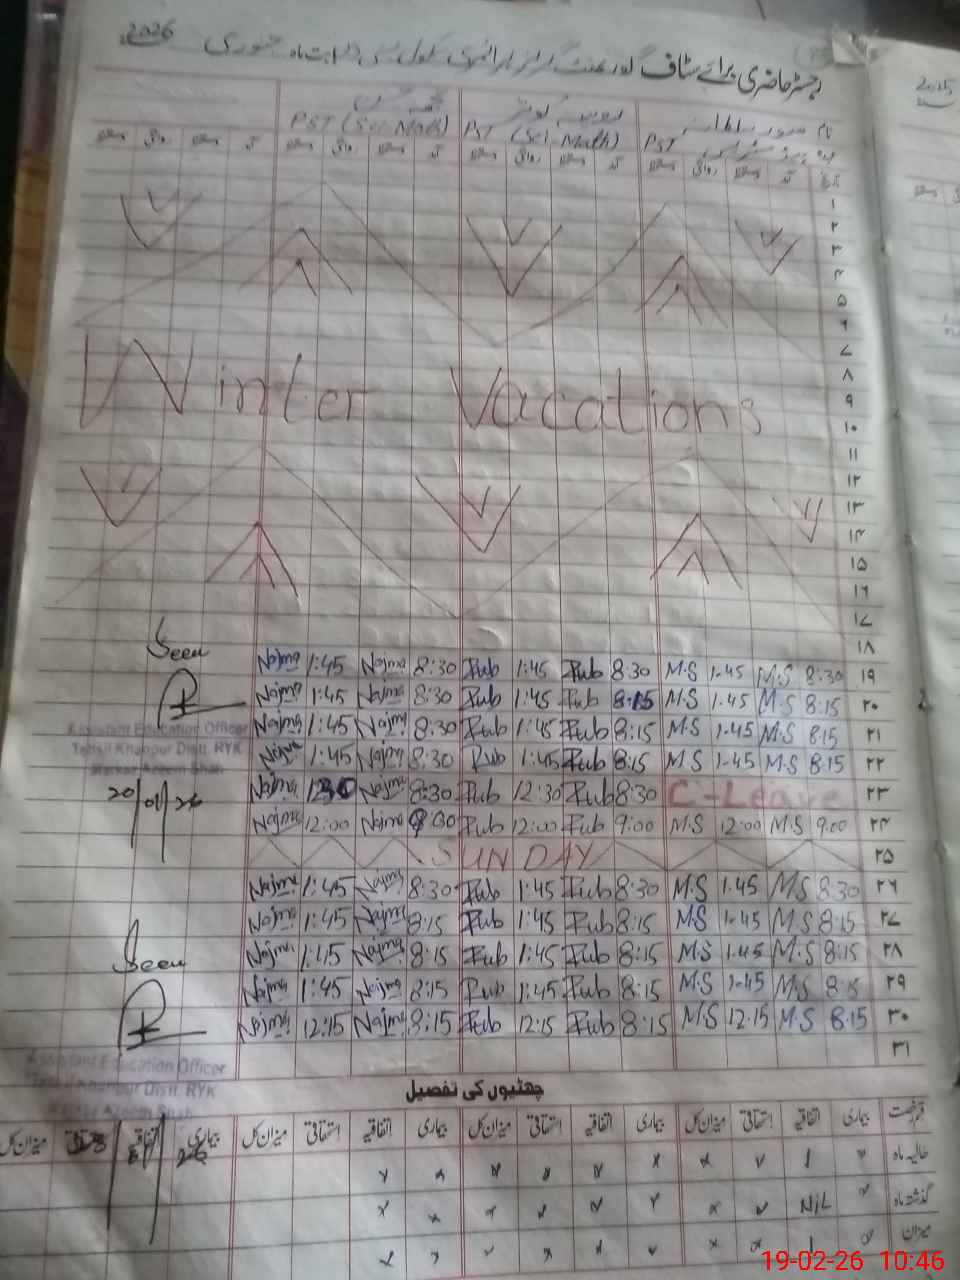 2026
رجسٹر حاضری برائے سٹاف گورنمنٹ گرلز پرائمری سکول بستی بابت ماہ جنوری
نام
PST PST (Sci. Math) PST (Sci-Math)
۱
۲
۳
۴
۵
۶
۷
۸
۹
۱۰
Winter Vacations
۱۱
۱۲
۱۳
۱۴
۱۵
۱۶
۱۷
۱۸
Seen
Najma 1:45 Najma 8:30 Rub 1:45 Rub 8:30 M.S 1.45 M.S 8:30 ۱۹
Najma 1:45 Najma 8:30 Rub 1:45 Rub 8:15 M.S 1.45 M.S 8:15 ۲۰
Najma 1:45 Najma 8:30 Rub 1:45 Rub 8:15 M.S 1.45 M.S 8:15 ۲۱
Najma 1:45 Najma 8:30 Rub 1:45 Rub 8:15 M.S 1.45 M.S 8:15 ۲۲
Najma Najma 8:30 Rub 12:30 Rub 8:30 C-Leave ۲۳
Najma 12:00 Najma Rub 12:00 Rub 9:00 M.S 12:00 M.S 9:00 ۲۴
SUNDAY ۲۵
Najma 1:45 Najma 8:30 Rub 1:45 Rub 8:30 M.S 1.45 M.S 8:30 ۲۶
Najma 1:45 Najma 8:15 Rub 1:45 Rub 8:15 M.S 1.45 M.S 8:15 ۲۷
Najma 1:45 Najma 8:15 Rub 1:45 Rub 8:15 M.S 1.45 M.S 8:15 ۲۸
Najma 1:45 Najma 8:15 Rub 1:45 Rub 8:15 M.S 1.45 M.S 8:15 ۲۹
Najma 12:15 Najma 8:15 Rub 12:15 Rub 8:15 M.S 12.15 M.S 8.15 ۳۰
۳۱
Assistant Education Officer
Tehsil Khanpur Distt. RYK
Markaz Azeem Shah
20/01/26
Seen
Assistant Education Officer
Tehsil Khanpur Distt. RYK
Markaz Azeem Shah
چھٹیوں کی تفصیل
قسم رخصت بیماری اتفاقیہ استحقاقی میزان کل بیماری اتفاقیہ استحقاقی میزان کل بیماری اتفاقیہ استحقاقی میزان کل بیماری اتفاقیہ استحقاقی میزان کل
حالیہ ماہ 1
گذشتہ ماہ NIL
میزان 1
19-02-26 10:46